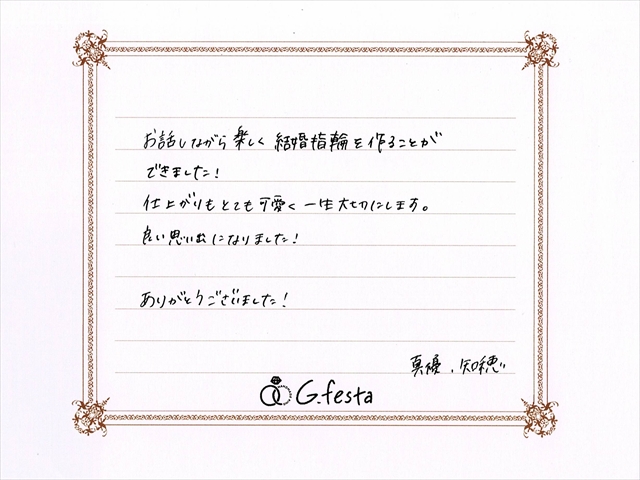 お話しながら楽しく結婚指輪を作ることが
できました!
仕上がりもとても可愛く一生大切にします。
良い思い出になりました!
ありがとうございました!
真優、知穂
G.festa